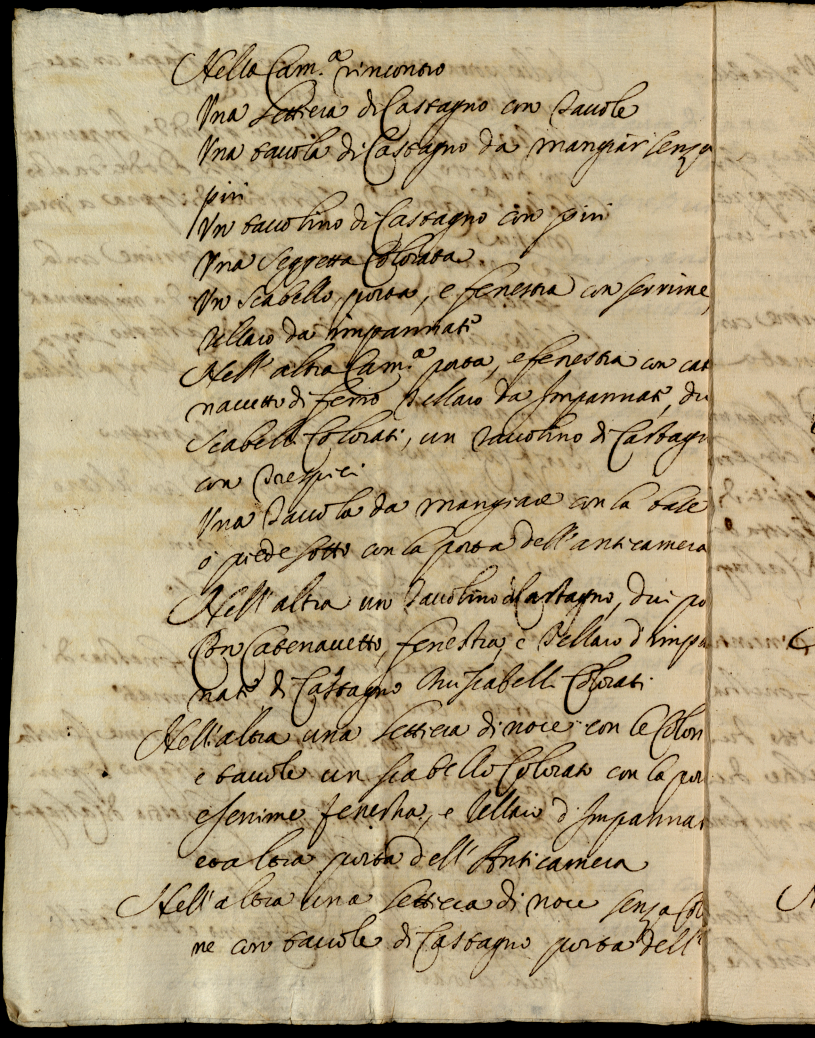 Nella Cam.a rincontro
Una Lettiera di Castagno con Tauole
Una tauola di Castagno da mangiar senza
piri
Un tauolino di Castagno con piri
Una Seggetta Colorata
Un scabello, porta, e fenestra con serrime,
Tellaro da impannate
Nell'altra Cam.a porta, e fenestra con cat
naccetto di ferro Tellaro da Impannate, du
Scabelli Colorati, un Tauolino di Castagn
con Trespici
Una Tauola da mangiare con la base
o piede sotto con la porta dell'anticamera
Nell'altra un Tauolino di Castagno, dui po
Con Catenaccetto, fenestra, e Tellaro d'impa
nate di Castagno scabelli Colorati
Nell'altra una Lettiera di noce con le Colon
e tauole un scabello Colorato con la por
e serrime fenestra, e Tellaro d'Impannat
et altra porta dell'Anticamera
Nell'altra una Lettiera di noce senza Col
ne con tauole di Castagno porta dell'